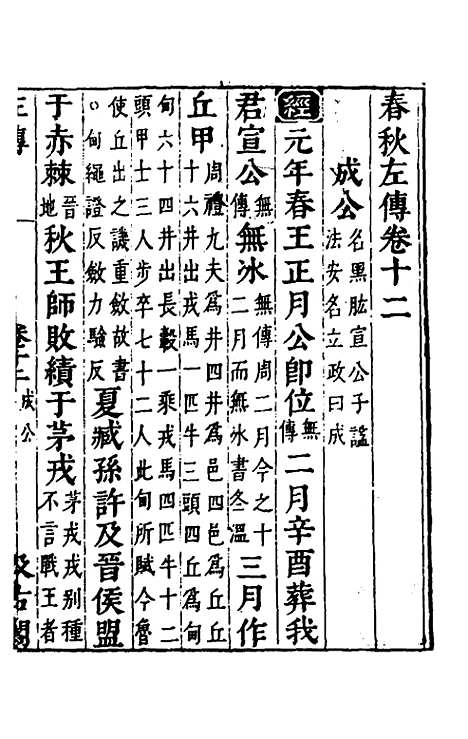 春秋左傳卷十二
成公名黑肱宣公子謚
法安名立政曰成
經元年春王正月公即位無
傳二月辛酉葬我
君宣公無
傳無冰無傳周二月今之十
二月而無冰書冬溫三月作
丘甲周禮九夫為井四井為邑四邑為丘丘
十六井出戎馬一匹牛三頭四丘為甸
甸六十四井出長轂一乘戎馬四匹牛十二
頭甲士三人步卒七十二人此甸所賦今魯
使丘出之譏重斂故書
○甸繩證反斂力驗反夏臧孫許及晉侯盟
于赤棘晉
地秋王師敗績于茅戎茅戎戎別種
不言戰王者
左傳 卷十二 成公 汲古閣